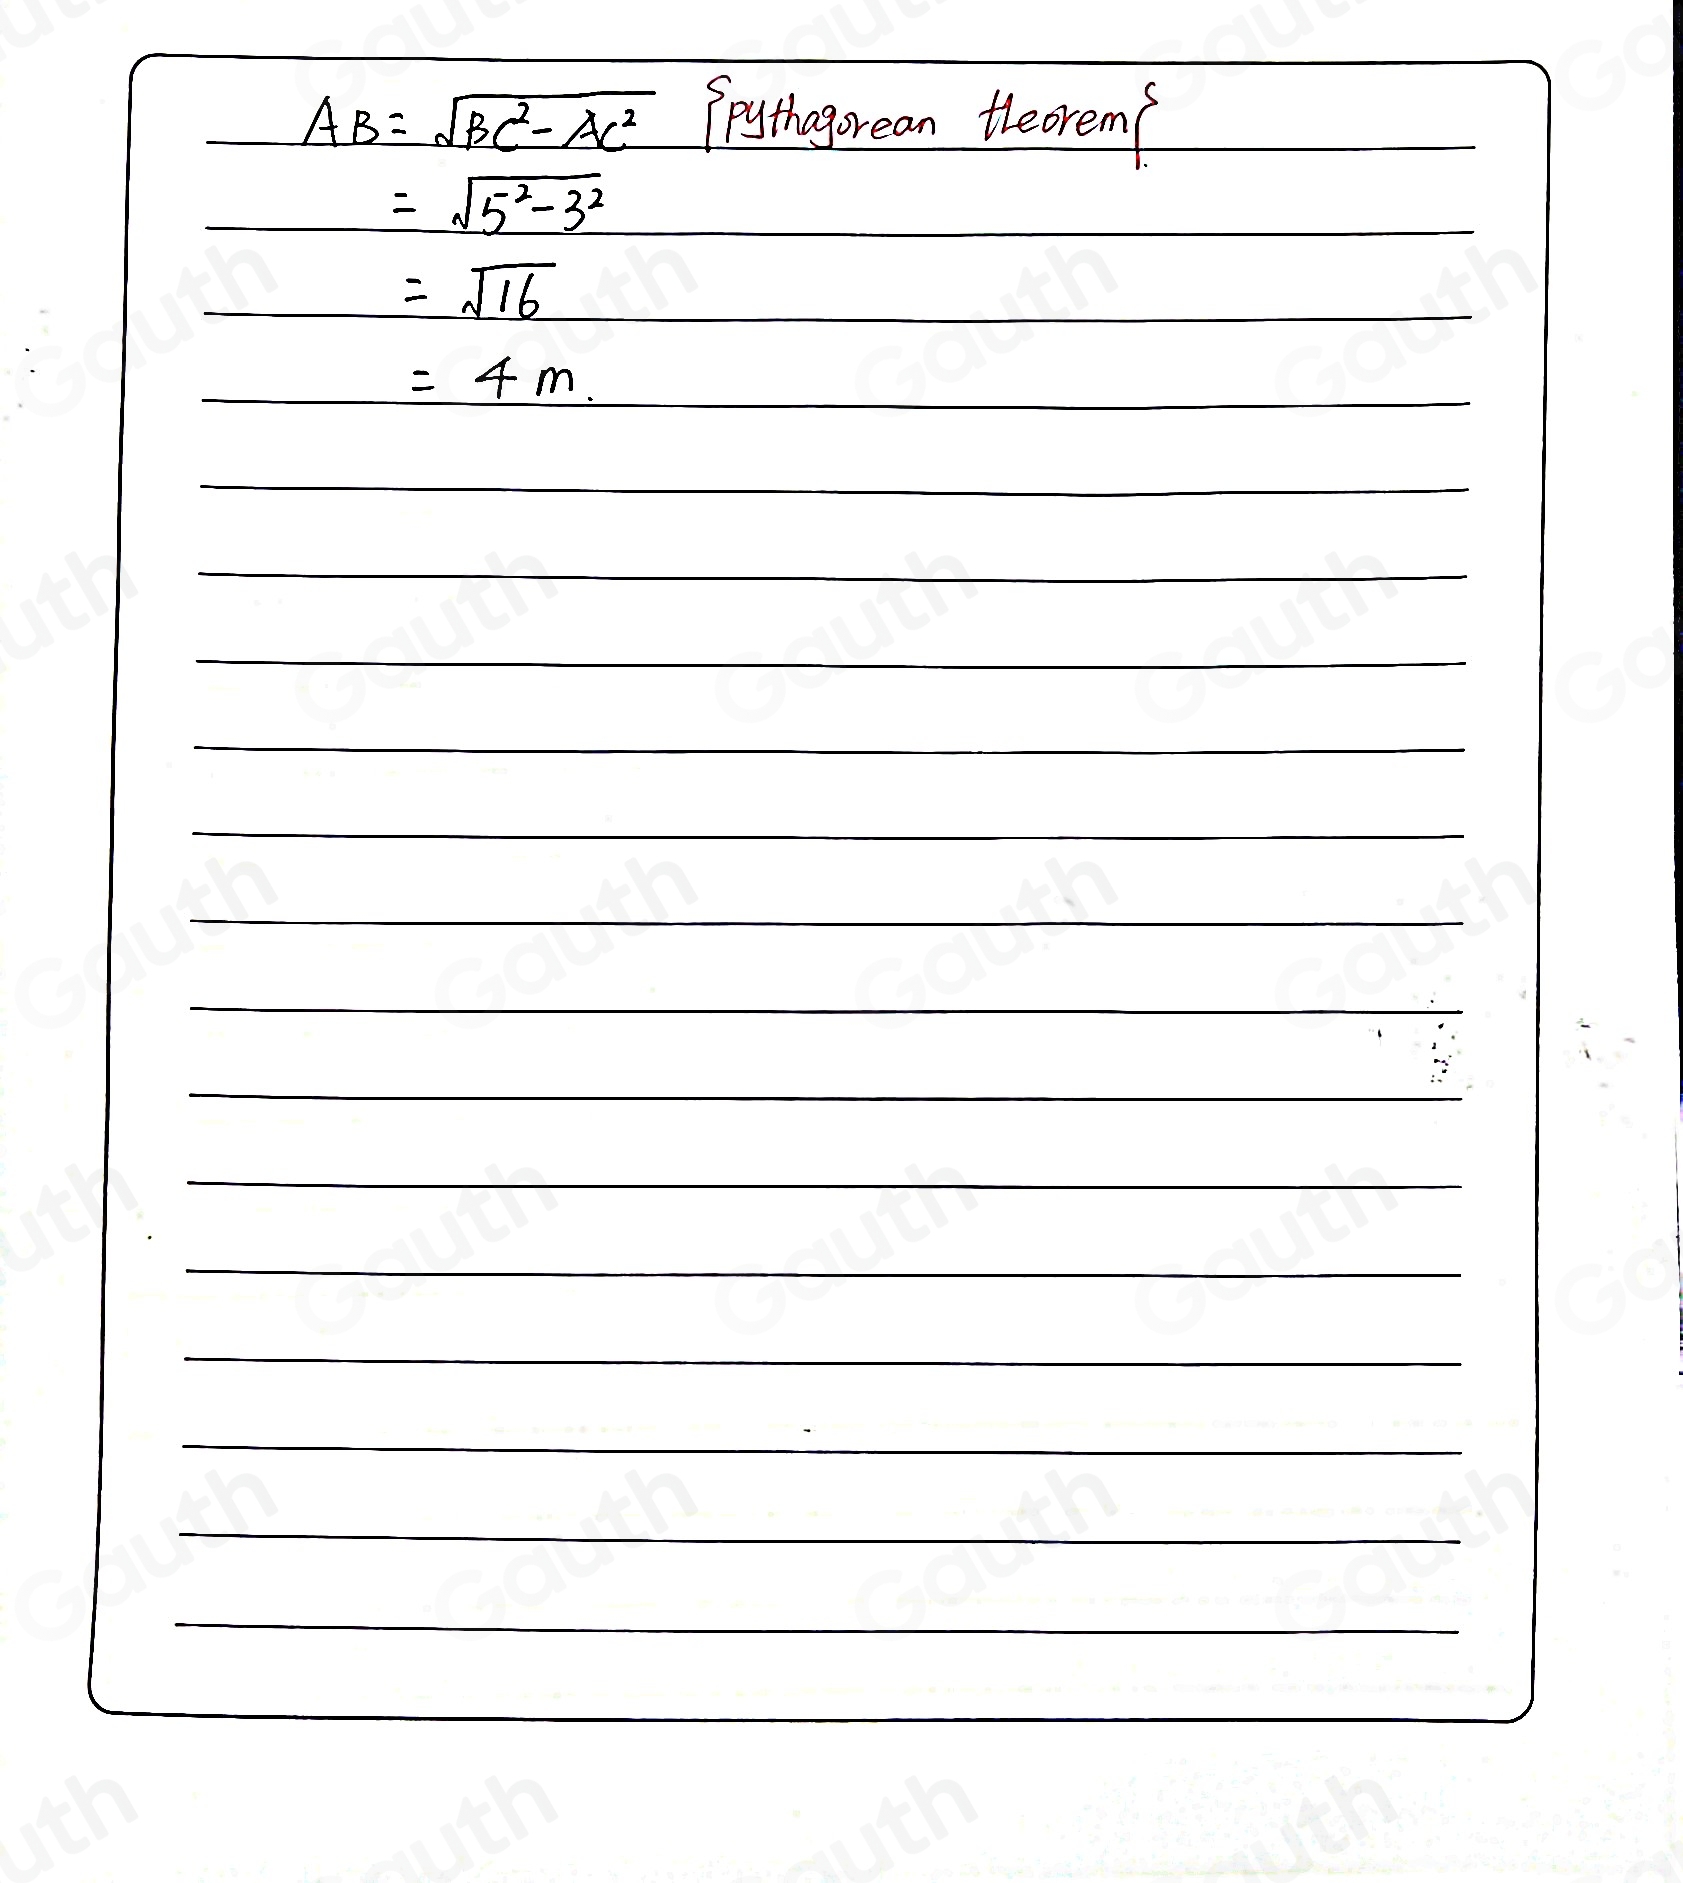 AB = √BC² - AC² {pythagorean theorem}
= √5² - 3²
= √16
= 4 m.